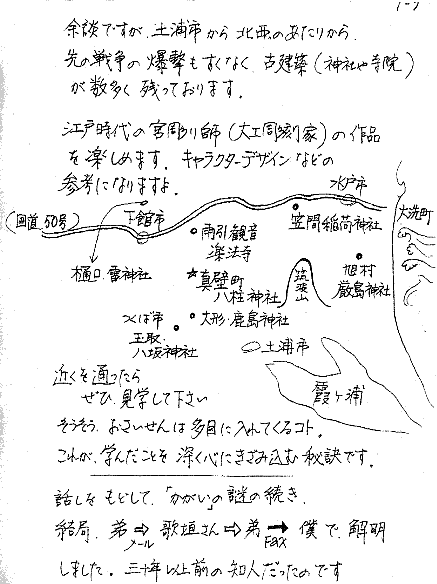 1-9
余談ですが、土浦市から北西のあたりから、
先の戦争の爆撃もすくなく、古建築(神社や寺院)
が数多く残っております。
江戸時代の宮彫り師(大工彫刻家)の作品
を楽しめます。キャラクターデザインなどの
参考になりますよ。
水戸市
(国道50号)
下館市
笠間稲荷神社
大洗町
雨引観音
楽法寺
樋口・雷神社
真壁町
八柱神社
筑波山
旭村
厳島神社
つくば市
玉取
八坂神社
大形・鹿島神社
土浦市
霞ヶ浦
近くを通ったら
ぜひ、見学して下さい
そうそう、おさいせんは多目に入れてくるコト。
これが、学んだことを深く心にきざみ込む秘訣です。
話しをもどして、「かがい」の謎の続き、
結局、弟⇨歌垣さん⇨弟➡僕で、解明
メール
Fax
しました。三十年以上前の知人だったのです